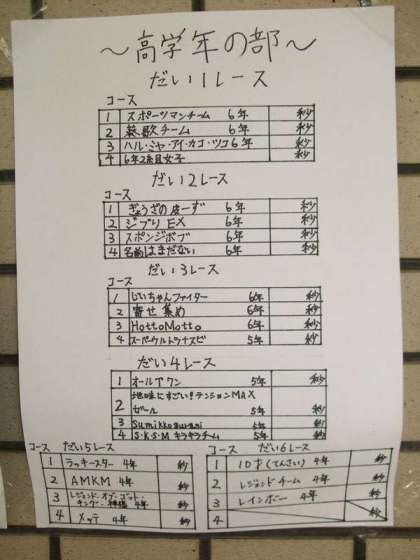 ～高学年の部～
だい1レース
コース
1 スポーツマンチーム 6年 秒
2 チーム 6年 秒
3 ハル・ミヤ・アイ・カコ・ツコ 6年 秒
4 6年2組女子 秒
だい2レース
コース
1 ぎょうざの皮ーず 6年 秒
2 ジブリEX 6年 秒
3 スポンジボブ 6年 秒
4 名前はまだない 6年 秒
だい3レース
コース
1 じいちゃんファイター 6年 秒
2 寄せ集め 6年 秒
3 HottoMotto 6年 秒
4 スーパーウルトラナスビ 5年 秒
だい4レース
コース
1 オールアウン 5年 秒
2 地味にすごい!テンションMAX
ガール 5年 秒
3 Sumikkogurashi 5年 秒
4 S・K・S・M キラキラチーム 5年 秒
コース だい5レース
1 ラッキースター 4年 秒
2 AMKM 4年 秒
3 レジェンド・オブ・ゴット・
キング・神様 4年 秒
4 メッテ 4年 秒
コース だい6レース
1 10才(てんさい) 4年 秒
2 レジェンドチーム 4年 秒
3 レインボー 4年 秒
4